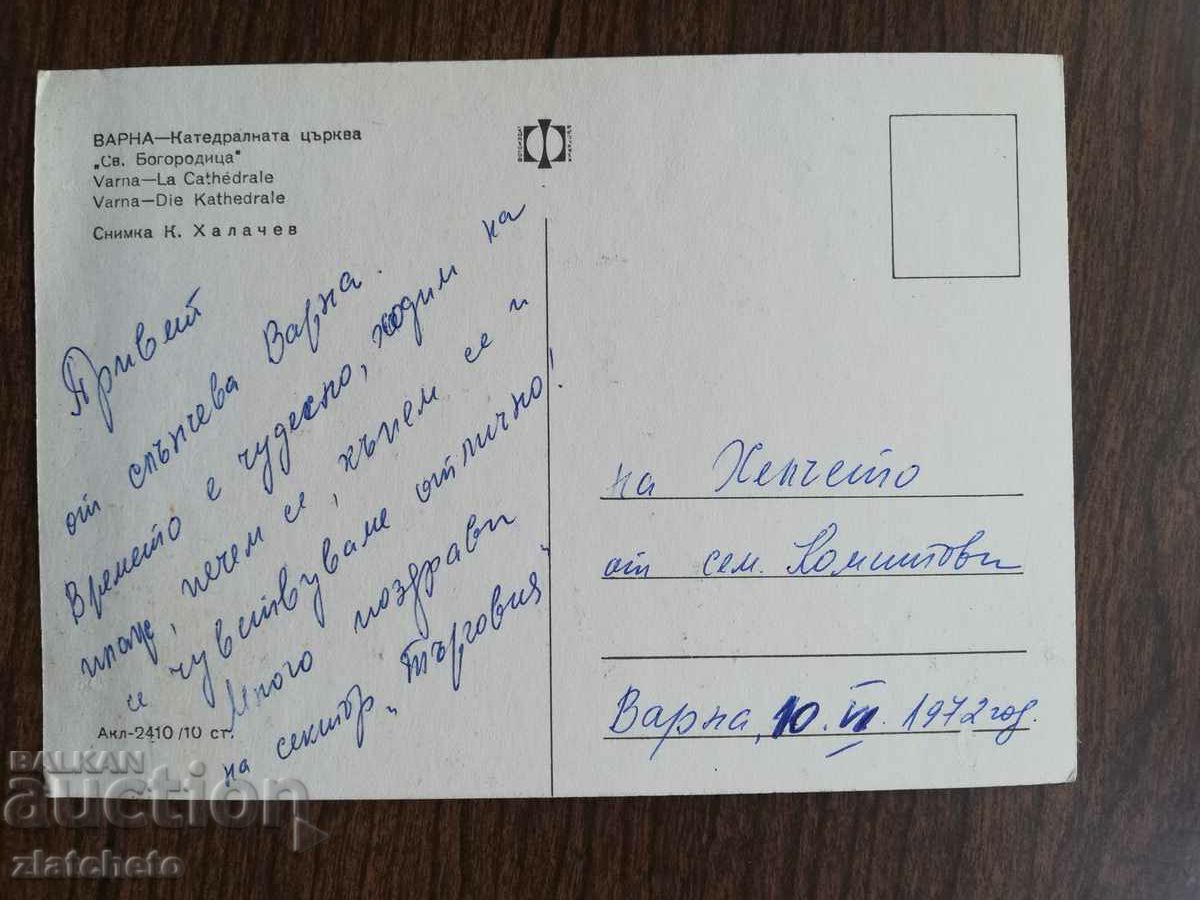 ВАРНА—Катедралната църква
„Св. Богородица"
Varna—La Cathédrale
Varna—Die Kathedrale
Снимка К. Халачев
Привет
от слънчева Варна.
Времето е чудесно, ходим на
плаж, печем се, къпем се и
се чувствуваме отлично!
Много поздрави
на сектор „Търговия"
Акл-2410/10 ст.
на Хенчето
от сем. Комитови
Варна, 10. VI. 1972 год.
BALKAN
auction
zlatcheto